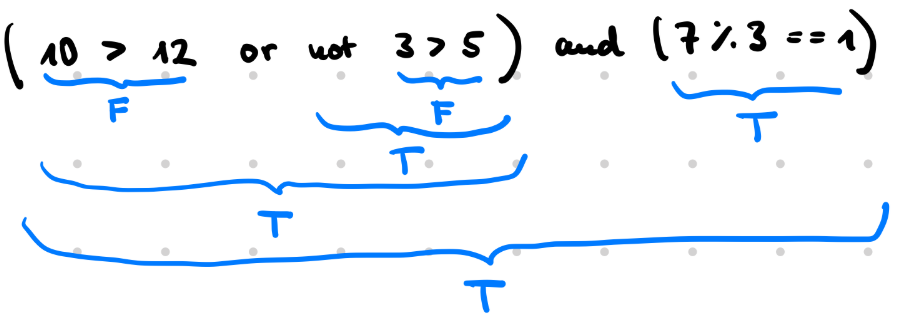 (10 > 12 or not 3 > 5) and (7 % 3 == 1)
F F T
T
T
T